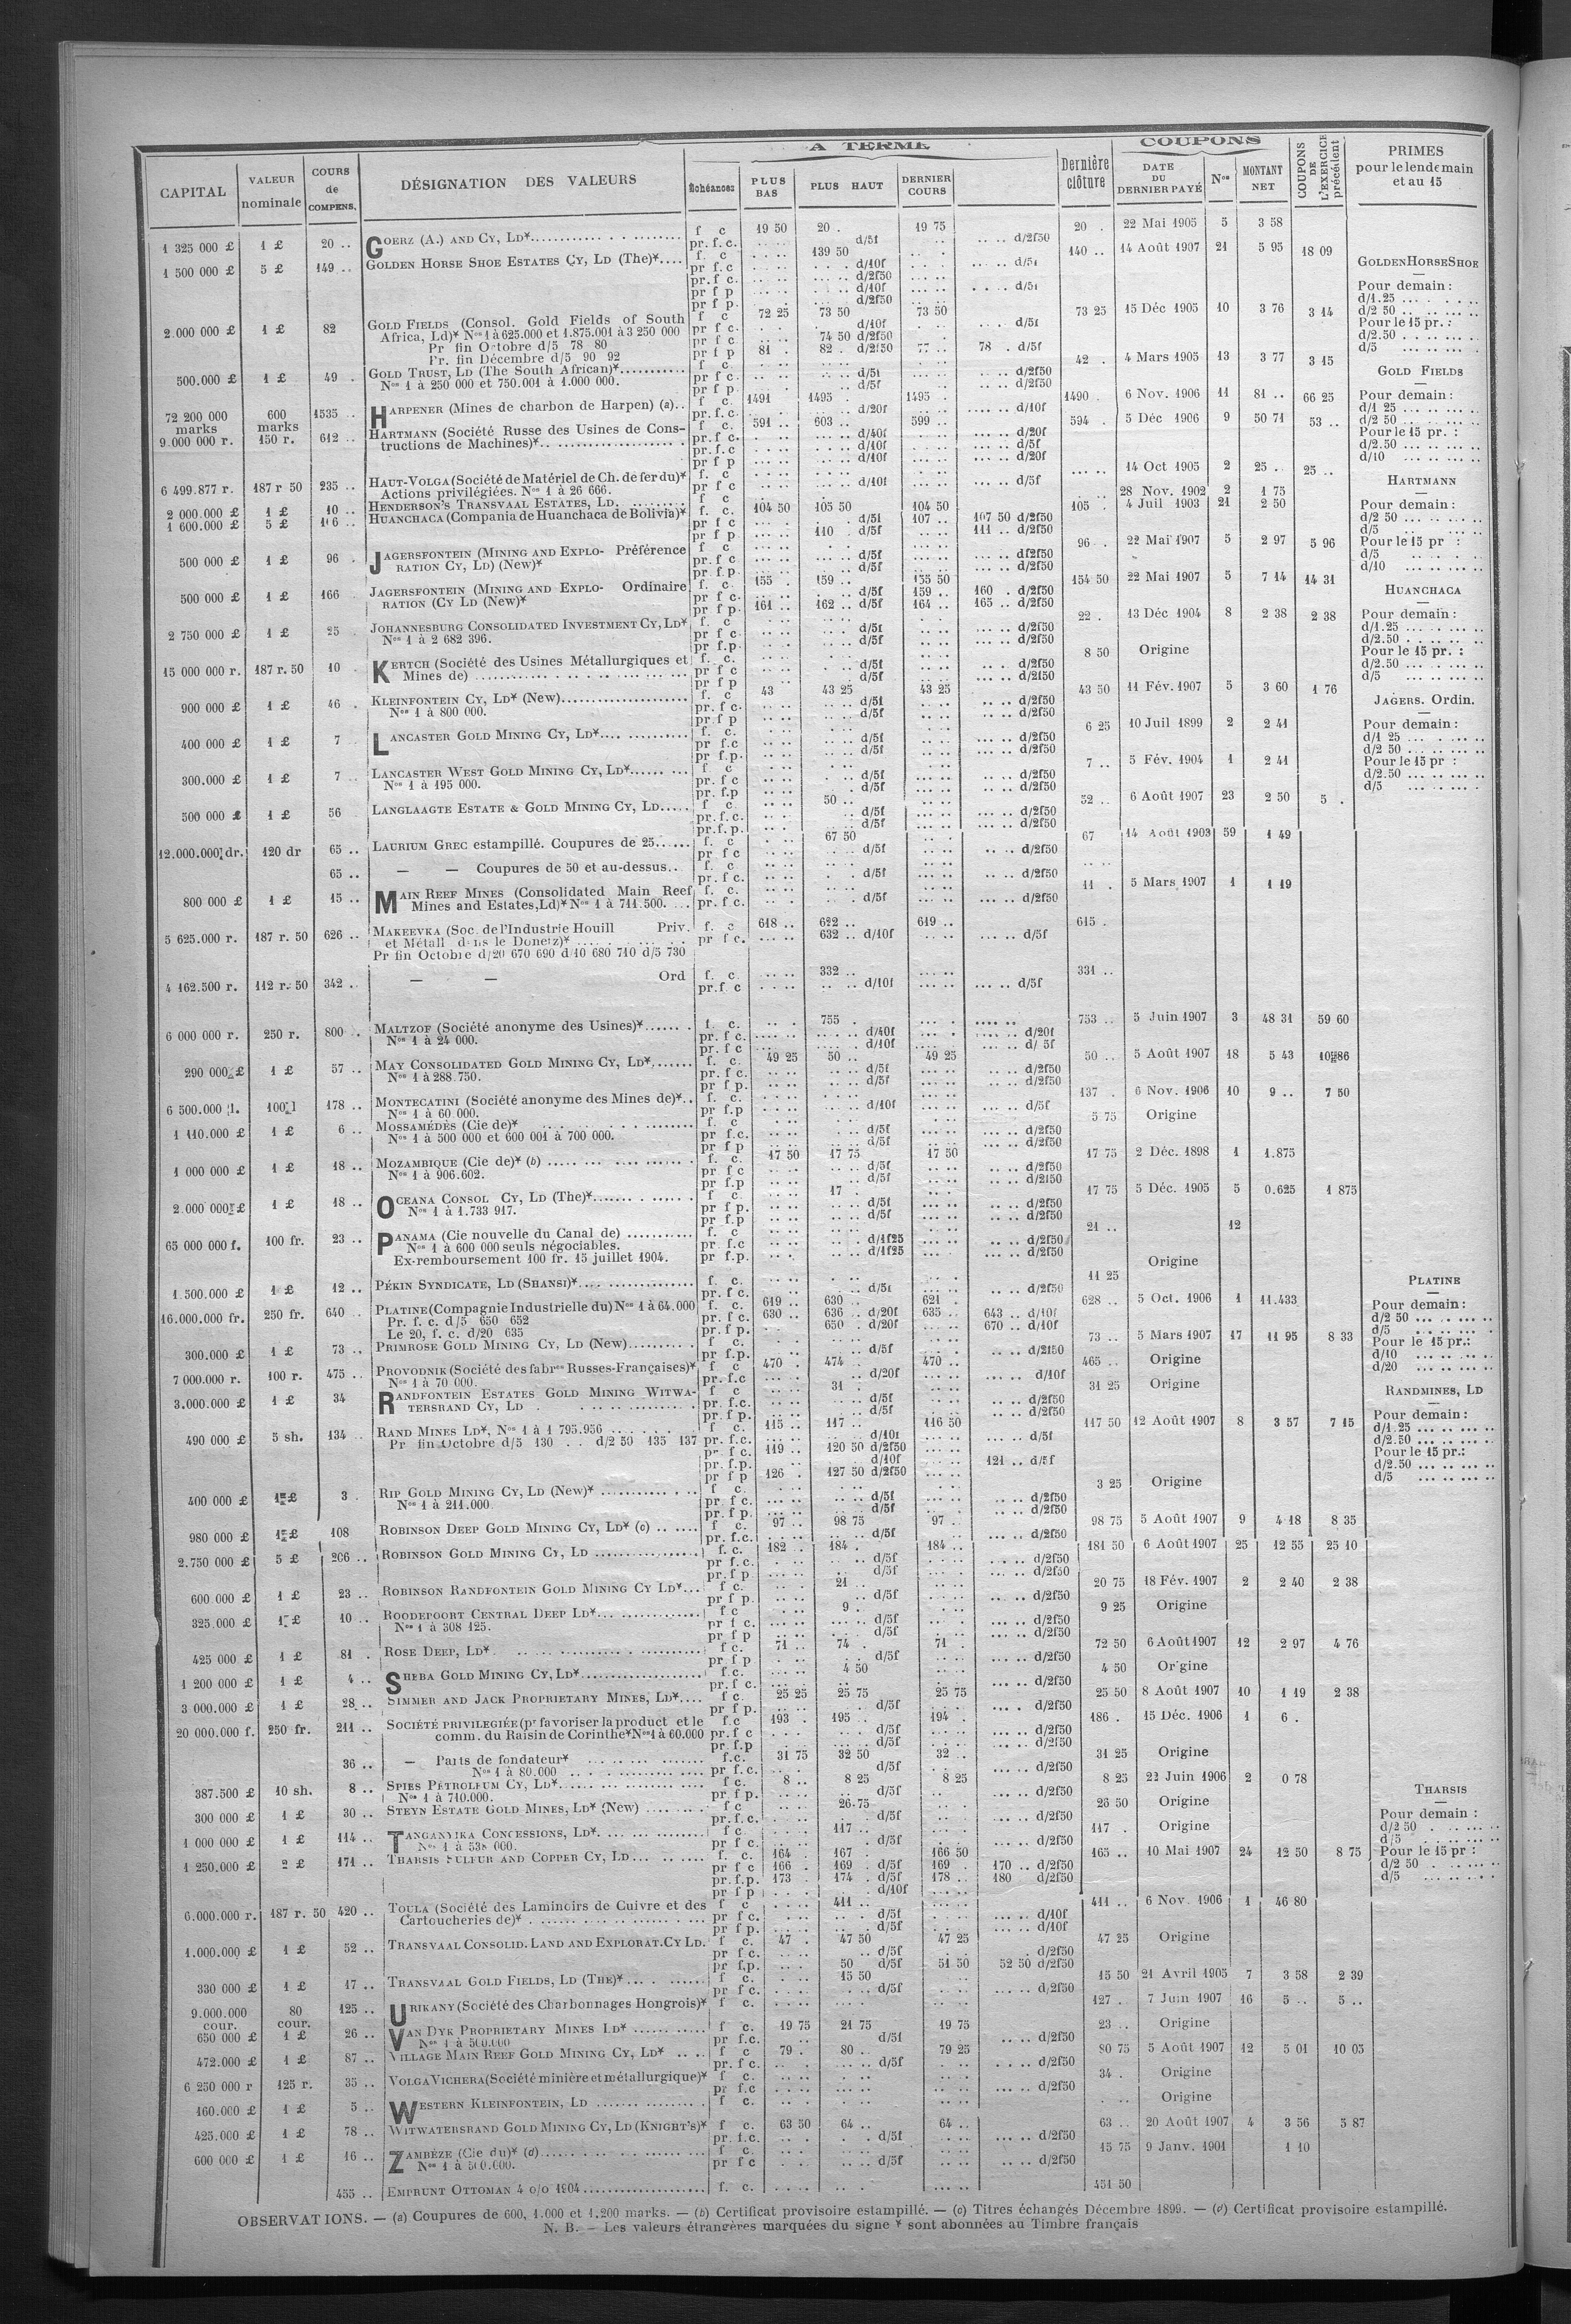 A TERME
COUPONS
CAPITAL | VALEUR nominale | COURS de COMPENS. | DÉSIGNATION DES VALEURS | Échéances | PLUS BAS | PLUS HAUT | DERNIER COURS | Dernière clôture | DATE DU DERNIER PAYÉ | Nos | MONTANT NET | COUPONS DE L'EXERCICE précédent | PRIMES pour le lendemain et au 15
1 325 000 £ 1 £ 20 .. GOERZ (A.) AND CY, LD* f c 19 50 20 . 19 75 20 . 22 Mai 1905 5 3 58
pr. f. c. d/5f d/2f50
1 500 000 £ 5 £ 149 .. GOLDEN HORSE SHOE ESTATES CY, LD (The)* f. c 139 50 140 .. 14 Août 1907 21 5 95 18 09
pr f. c d/10f d/5f
pr. f. c d/2f50
pr f p d/10f d/5f
pr f p. d/2f50
2.000 000 £ 1 £ 82 GOLD FIELDS (Consol. Gold Fields of South f c 72 25 73 50 73 50 73 25 15 Déc 1905 10 3 76 3 14
Africa, Ld)* Nos 1 à 625.000 et 1.875.001 à 3 250 000 pr f c. d/10f d/5f
Pr fin Octobre d/5 78 80 pr f c 74 50 d/2f50
Pr. fin Décembre d/5 90 92 pr f p 81 . 82 . d/2f50 77 .. 78 . d/5f
500.000 £ 1 £ 49 . GOLD TRUST, LD (The South African)* f c. 42 . 4 Mars 1905 13 3 77 3 15
Nos 1 à 250 000 et 750.001 à 1.000 000. pr f c. d/5f d/2f50
pr f p. d/5f d/2f50
72 200 000 marks 600 marks 1535 .. HARPENER (Mines de charbon de Harpen) (a).. f c. 1491 1495 . 1495 . 1490 . 6 Nov. 1906 11 81 .. 66 25
pr. f. c. d/20f d/10f
9.000 000 r. 150 r. 612 .. HARTMANN (Société Russe des Usines de Cons- f. c. 591 .. 603 .. 599 .. 594 . 5 Déc 1906 9 50 71 53 ..
tructions de Machines)* pr. f c. d/40f d/20f
pr. f. c d/10f d/5f
pr f p d/10f d/20f
6 499.877 r. 187 r 50 235 .. HAUT-VOLGA (Société de Matériel de Ch. de fer du)* f. c 14 Oct 1905 2 25 .. 25 ..
Actions privilégiées. Nos 1 à 26 666. pr f c d/10f d/5f
2 000.000 £ 1 £ 10 .. HENDERSON'S TRANSVAAL ESTATES, LD. f c 28 Nov. 1902 2 1 75
1 600.000 £ 5 £ 106 .. HUANCHACA (Compania de Huanchaca de Bolivia)* f. c. 104 50 105 50 104 50 105 . 4 Juil 1903 21 2 50
pr f c d/5f 107 .. 107 50 d/2f50
pr f p. 110 . d/5f 111 .. d/2f50
500 000 £ 1 £ 96 . JAGERSFONTEIN (MINING AND EXPLO- Préférence f c 96 . 22 Mai 1907 5 2 97 5 96
RATION CY, LD) (New)* pr. f c d/5f d/2f50
pr. f p. d/5f d/2f50
500 000 £ 1 £ 166 JAGERSFONTEIN (MINING AND EXPLO- Ordinaire f. c. 155 . 159 .. 155 50 154 50 22 Mai 1907 5 7 14 14 31
RATION (CY LD (New)* pr f c. d/5f 159 .. 160 . d/2f50
pr f p. 161 .. 162 .. d/5f 164 .. 165 .. d/2f50
2 750 000 £ 1 £ 25 . JOHANNESBURG CONSOLIDATED INVESTMENT CY, LD* f. c 22 . 13 Déc 1904 8 2 38 2 38
Nos 1 à 2 682 396. pr f c d/5f d/2f50
pr f.p. d/5f d/2f50
15 000 000 r. 187 r. 50 10 . KERTCH (Société des Usines Métallurgiques et f. c. 8 50 Origine
Mines de) pr f c d/5f d/2f50
pr f p d/5f d/2f50
900 000 £ 1 £ 46 . KLEINFONTEIN CY, LD* (New) f. c 43 43 25 43 25 43 50 11 Fév. 1907 5 3 60 1 76
Nos 1 à 800 000. pr f c. d/5f d/2f50
pr. f p d/5f d/2f50
400 000 £ 1 £ 7 LANCASTER GOLD MINING CY, LD* f. c. 6 25 10 Juil 1899 2 2 41
pr f.c d/5f d/2f50
pr f.p. d/5f d/2f50
300.000 £ 1 £ 7 .. LANCASTER WEST GOLD MINING CY, LD* f c 7 .. 5 Fév. 1904 1 2 41
Nos 1 à 195 000. pr. f c d/5f d/2f50
pr. f.p d/5f d/2f50
500 000 £ 1 £ 56 LANGLAAGTE ESTATE & GOLD MINING CY, LD f c. 50 .. 52 .. 6 Août 1907 23 2 50 5 .
pr. f. c. d/5f d/2f50
pr. f. p. d/5f d/2f50
12.000.000 dr. 120 dr 65 .. LAURIUM GREC estampillé. Coupures de 25 f. c 67 50 67 14 Août 1903 59 1 49
pr f c d/5f d/2f50
65 .. — — Coupures de 50 et au-dessus.. f. c
pr. f c. d/5f d/2f50
800 000 £ 1 £ 15 .. MAIN REEF MINES (Consolidated Main Reef f. c. 11 . 5 Mars 1907 1 1 19
Mines and Estates, Ld)* Nos 1 à 711.500. pr. f c. d/5f d/2f50
5 625.000 r. 187 r. 50 626 .. MAKEEVKA (Soc. de l'Industrie Houill Priv. f. c 618 .. 622 .. 619 .. 615 .
et Métall dans le Donetz)* pr f c. 632 .. d/10f d/5f
Pr fin Octobre d/20 670 690 d/10 680 710 d/5 730
4 162.500 r. 112 r. 50 342 .. — — Ord f. c. 332 .. 331 ..
pr. f. c d/10f d/5f
6 000 000 r. 250 r. 800 .. MALTZOF (Société anonyme des Usines)* f. c. 755 . 753 .. 5 Juin 1907 3 48 31 59 60
Nos 1 à 24 000. pr. f c. d/40f d/20f
pr. f c d/10f d/ 5f
290 000 £ 1 £ 57 .. MAY CONSOLIDATED GOLD MINING CY, LD* f. c. 49 25 50 .. 49 25 50 .. 5 Août 1907 18 5 43 10 86
Nos 1 à 288.750. pr. f c. d/5f d/2f50
pr f p. d/5f d/2f50
6 500.000 l. 100 l 178 .. MONTECATINI (Société anonyme des Mines de)*.. f. c. 137 . 6 Nov. 1906 10 9 .. 7 50
Nos 1 à 60 000. pr f.p d/10f d/5f
1 110.000 £ 1 £ 6 .. MOSSAMÉDÈS (Cie de)* f. c 5 75 Origine
Nos 1 à 500 000 et 600 001 à 700 000. pr f.c. d/5f d/2f50
pr f p d/5f d/2f50
1 000 000 £ 1 £ 18 .. MOZAMBIQUE (Cie de)* (b) f. c. 17 50 17 75 17 50 17 75 2 Déc. 1898 1 1.875
Nos 1 à 906.602. pr f c d/5f d/2f50
pr f.p d/5f d/2f50
2.000 000 £ 1 £ 18 .. OCEANA CONSOL CY, LD (The)* f c. 17 . 17 75 5 Déc. 1905 5 0.625 1 875
Nos 1 à 1.733 917. pr f p. d/5f d/2f50
pr f.p d/5f d/2f50
65 000 000 f. 100 fr. 23 .. PANAMA (Cie nouvelle du Canal de) f. c 21 .. 12
Nos 1 à 600 000 seuls négociables. pr f.c d/1f25 d/2f50
Ex-remboursement 100 fr. 15 juillet 1904. pr f.p. d/1f25 d/2f50
1.500.000 £ 1 £ 12 .. PÉKIN SYNDICATE, LD (SHANSI)* f. c. 11 25 Origine
pr. f c. d/5f d/2f50
16.000.000 fr. 250 fr. 640 .. PLATINE (Compagnie Industrielle du) Nos 1 à 64.000 f. c. 619 .. 630 .. 621 . 628 .. 5 Oct. 1906 1 11.433
Pr. f. c. d/5 650 652 pr. f c. 630 .. 636 .. d/20f 635 .. 643 .. d/10f
Le 20, f. c. d/20 635 pr. f p. 650 . d/20f 670 .. d/10f
300.000 £ 1 £ 73 .. PRIMROSE GOLD MINING CY, LD (New) f. c. 73 .. 5 Mars 1907 17 11 95 8 33
pr f.p. d/5f d/2f50
7 000.000 r. 100 r. 475 .. PROVODNIK (Société des fabres Russes-Françaises)* f c 470 . 474 . 470 .. 465 .. Origine
Nos 1 à 70 000. pr. f.c d/20f d/10f
3.000.000 £ 1 £ 34 RANDFONTEIN ESTATES GOLD MINING WITWA- f c 31 . 31 25 Origine
TERSRAND CY, LD pr. f.c. d/5f d/2f50
pr. f p. d/5f d/2f50
490 000 £ 5 sh. 134 .. RAND MINES LD*, Nos 1 à 1 795.956 f c. 115 .. 117 .. 116 50 117 50 12 Août 1907 8 3 57 7 15
Pr fin Octobre d/5 130 . . d/2 50 135 137 pr. f.c. d/10f d/5f
pr f c. 119 .. 120 50 d/2f50
pr. f.p. d/10f 121 .. d/5f
pr f p 126 . 127 50 d/2f50
400 000 £ 1 £ 3 . RIP GOLD MINING CY, LD (New)* f c. 3 25 Origine
Nos 1 à 211.000 pr. f c. d/5f d/2f50
pr. f p. d/5f d/2f50
980 000 £ 1 £ 108 ROBINSON DEEP GOLD MINING CY, LD* (c) f c. 97 .. 98 75 97 .. 98 75 5 Août 1907 9 4 18 8 35
pr. f.c. d/5f d/2f50
2.750 000 £ 5 £ 206 .. ROBINSON GOLD MINING CY, LD f. c. 182 .. 184 . 184 .. 181 50 6 Août 1907 25 12 55 25 10
pr f.c. d/5f d/2f50
pr. f p. d/5f d/2f50
600 000 £ 1 £ 23 .. ROBINSON RANDFONTEIN GOLD MINING CY LD* f c. 21 .. 20 75 18 Fév. 1907 2 2 40 2 38
pr f p. d/5f d/2f50
325.000 £ 1 £ 10 .. ROODEPOORT CENTRAL DEEP LD* f c 9 . 9 25 Origine
Nos 1 à 308 125. pr f c. d/5f d/2f50
pr f p d/5f d/2f50
425 000 £ 1 £ 81 . ROSE DEEP, LD* f c. 71 .. 74 . 71 . 72 50 6 Août 1907 12 2 97 4 76
pr f p d/5f d/2f50
1 200 000 £ 1 £ 4 .. SHEBA GOLD MINING CY, LD* f.c. 4 50 4 50 Origine
pr. f c. d/2f50
3 000.000 £ 1 £ 28 .. SIMMER AND JACK PROPRIETARY MINES, LD* f c. 25 25 25 75 25 75 25 50 8 Août 1907 10 1 19 2 38
pr f p. d/5f d/2f50
20 000.000 f. 250 fr. 211 .. SOCIÉTÉ PRIVILEGIÉE (pr favoriser la product et le f.c 193 . 195 .. 194 . 186 . 15 Déc. 1906 1 6 .
comm. du Raisin de Corinthe* Nos 1 à 60.000 pr. f c d/5f d/2f50
pr. f.p d/5f d/2f50
36 .. — Parts de fondateur* f.c. 31 75 32 50 32 .. 31 25 Origine
Nos 1 à 80.000 pr. f c. d/5f d/2f50
387.500 £ 10 sh. 8 .. SPIES PÉTROLEUM CY, LD* f c. 8 .. 8 25 8 25 8 25 22 Juin 1906 2 0 78
Nos 1 à 710.000. pr f p. d/5f d/2f50
300 000 £ 1 £ 30 .. STEYN ESTATE GOLD MINES, LD* (New) f c 26.75 26 50 Origine
pr. f.c. d/5f d/2f50
1 000 000 £ 1 £ 114 .. TANGANYIKA CONCESSIONS, LD* f c. 117 .. 117 . Origine
Nos 1 à 538 000. pr f c. d/5f d/2f50
1 250.000 £ 2 £ 171 .. THARSIS SULFUR AND COPPER CY, LD f. c. 164 167 . 166 50 165 .. 10 Mai 1907 24 12 50 8 75
pr f c 166 . 169 . d/5f 169 . 170 .. d/2f50
pr. f.p. 173 . 174 . d/5f 178 .. 180 d/2f50
pr f p d/10f
6.000.000 r. 187 r. 50 420 .. TOULA (Société des Laminoirs de Cuivre et des f c 411 .. 411 .. 6 Nov. 1906 1 46 80
Cartoucheries de)* pr f c. d/5f d/10f
pr f p. d/5f d/10f
1.000.000 £ 1 £ 52 .. TRANSVAAL CONSOLID. LAND AND EXPLORAT. CY LD. f c. 47 . 47 50 47 25 47 25 Origine
pr f c. d/5f d/2f50
pr f.p. 50 d/5f 51 50 52 50 d/2f50
330 000 £ 1 £ 17 .. TRANSVAAL GOLD FIELDS, LD (THE)* f c. 15 50 15 50 21 Avril 1905 7 3 58 2 39
pr f c. d/5f d/2f50
9.000.000 cour. 80 cour. 125 .. URIKANY (Société des Charbonnages Hongrois)* f c. 127 . 7 Juin 1907 16 5 .. 5 ..
650 000 £ 1 £ 26 .. VAN DYK PROPRIETARY MINES LD* f c. 19 75 21 75 19 75 23 .. Origine
Nos 1 à 500.000 pr f.c. d/5f d/2f50
472.000 £ 1 £ 87 .. VILLAGE MAIN REEF GOLD MINING CY, LD* f c 79 . 80 .. 79 25 80 75 5 Août 1907 12 5 01 10 05
pr. f c. d/5f d/2f50
6 250 000 r 125 r. 35 .. VOLGA VICHERA (Société minière et métallurgique)* f c. 34 . Origine
pr f.c d/2f50
160.000 £ 1 £ 5 .. WESTERN KLEINFONTEIN, LD f c. Origine
425.000 £ 1 £ 78 .. WITWATERSRAND GOLD MINING CY, LD (KNIGHT'S)* f c. 63 50 64 .. 64 .. 63 .. 20 Août 1907 4 3 56 5 87
pr. f.c. d/5f d/2f50
600 000 £ 1 £ 16 .. ZAMBÈZE (Cie du)* (d) f c. 15 75 9 Janv. 1901 1 10
Nos 1 à 500.000. pr f c d/5f d/2f50
455 .. EMPRUNT OTTOMAN 4 o/o 1904 f. c. 451 50
GOLDEN HORSE SHOE
Pour demain :
d/1.25
d/2 50
Pour le 15 pr. :
d/2.50
d/5
GOLD FIELDS
Pour demain :
d/1 25
d/2 50
Pour le 15 pr. :
d/2.50
d/10
HARTMANN
Pour demain :
d/2 50
d/5
Pour le 15 pr :
d/5
d/10
HUANCHACA
Pour demain :
d/1.25
d/2.50
Pour le 15 pr. :
d/2.50
d/5
JAGERS. Ordin.
Pour demain :
d/1 25
d/2 50
Pour le 15 pr :
d/2.50
d/5
PLATINE
Pour demain :
d/2 50
d/5
Pour le 15 pr.:
d/10
d/20
RANDMINES, LD
Pour demain :
d/1.25
d/2.50
Pour le 15 pr.:
d/2.50
d/5
THARSIS
Pour demain :
d/2 50
d/5
Pour le 15 pr :
d/2 50
d/5
OBSERVATIONS. — (a) Coupures de 600, 1.000 et 1.200 marks. — (b) Certificat provisoire estampillé. — (c) Titres échangés Décembre 1899. — (d) Certificat provisoire estampillé.
N. B. — Les valeurs étrangères marquées du signe * sont abonnées au Timbre français